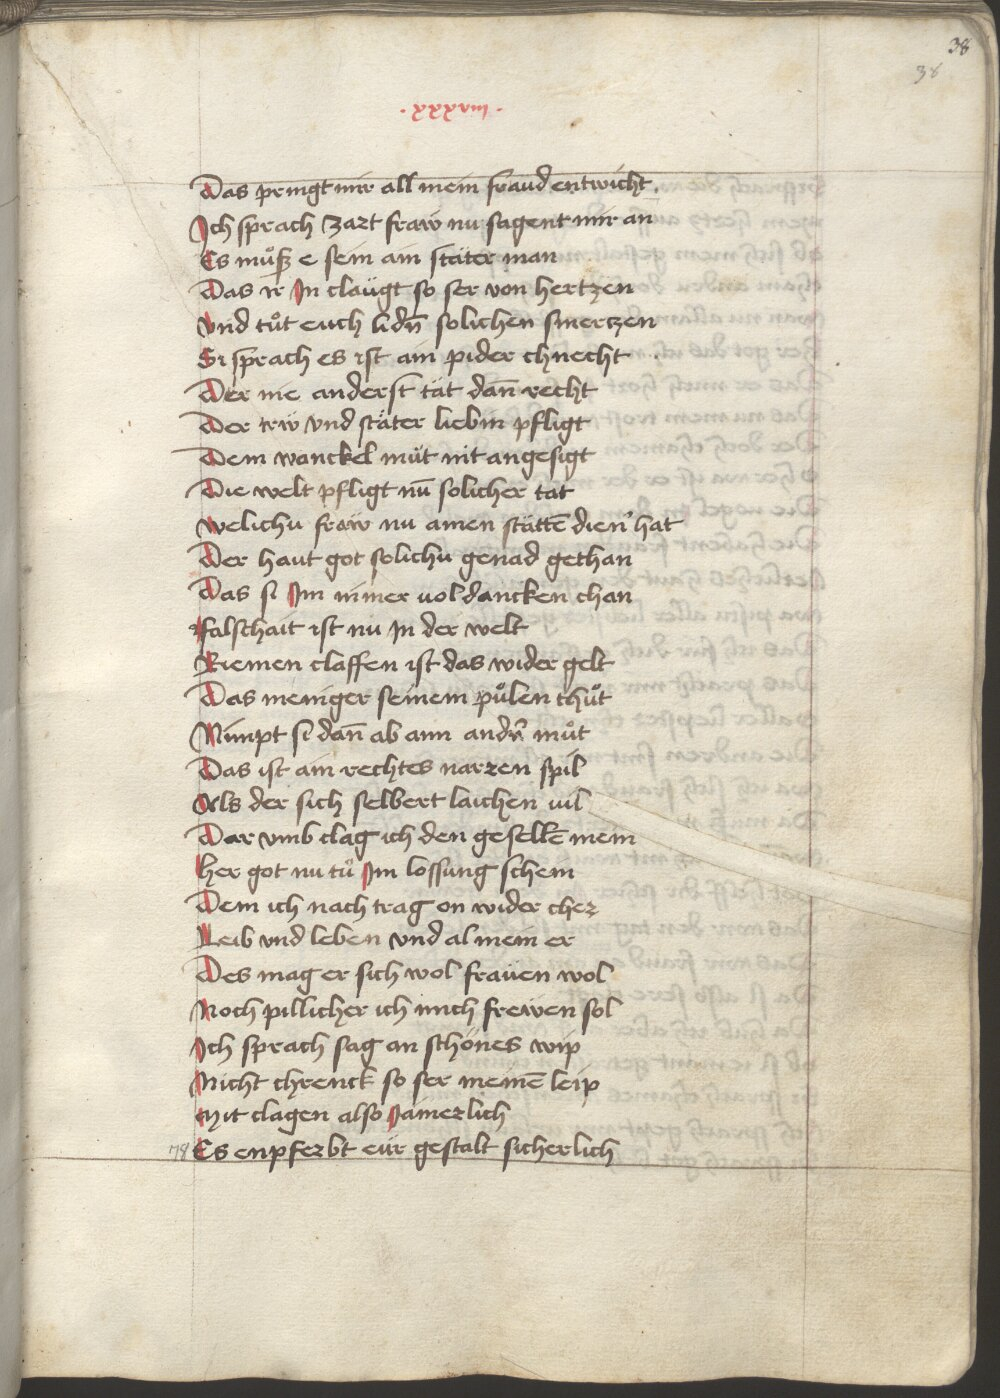 38
38
· xxxviii ·
Das pringt mir all mein fraud entwicht .
Ich sprach zart fraw nu sagent mir an
Es můsz e sein ain stäter man
Das ir In claügt so ser von hertzen
Vnd tůt euch lidn̄ solichen smertzen
Si sprach es ist ain pider chnecht
Der nie anderst tät dan̄ recht
Der trw vnd stäter lieb in pfligt
Dem wanckel müt nit angesigt
Die welt pfligt nū solicher tat
Welichu fraw nu ainen stättē dien̄ hat
Der haut got solichu genad gethan
Das si Im nimer uol dancken chan
Falschait ist nu In der welt
Riemen claffen ist das wider gelt
Das meniger seinem půlen thůt
Nimpt si dan̄ ab ain andn̄ můt
Das ist ain rechtes narren spil
Als der sich selbert laichen wil
Dar vmb clag ich den gesellē mein
her got nu tů Im lossung schein
Dem ich nach trag on wider cher
Leib vnd leben vnd al mein er
Des mag er sich wol fraüen wol
Noch pillicher ich mich frewen sol
Ich sprach sag an schönes wip
Nicht chrenck so ser meinē leip
Mit clagen also Iämerlich
78 Es enpferbt eür gestalt sicherlich